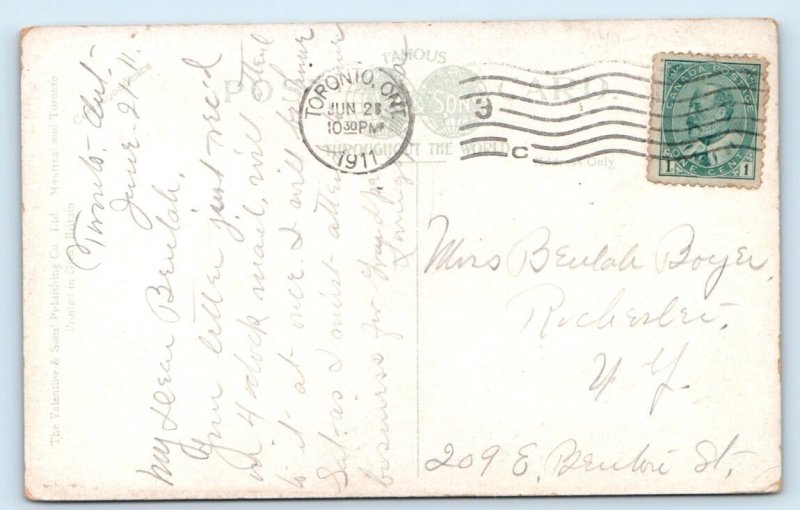 The Valentine & Sons' Publishing Co., Ltd. Montreal and Toronto
Printed in Great Britain
FAMOUS
POST CARD
& SONS
THROUGHOUT THE WORLD
Address Only.
TORONTO, ONT.
JUN 21
10 30 PM
1911
3
C
CANADA POSTAGE
ONE CENT
1 1
Toronto. Ont.
June. 21-11.
My Dear Beulah,
Your letter just rec'd
on 4 o'clock mail, will
to it at once I will
Sat. as I must attend
business for Grandpa
Miss Beulah Boyer,
Rochester.
N Y.
209 E. Benton St.